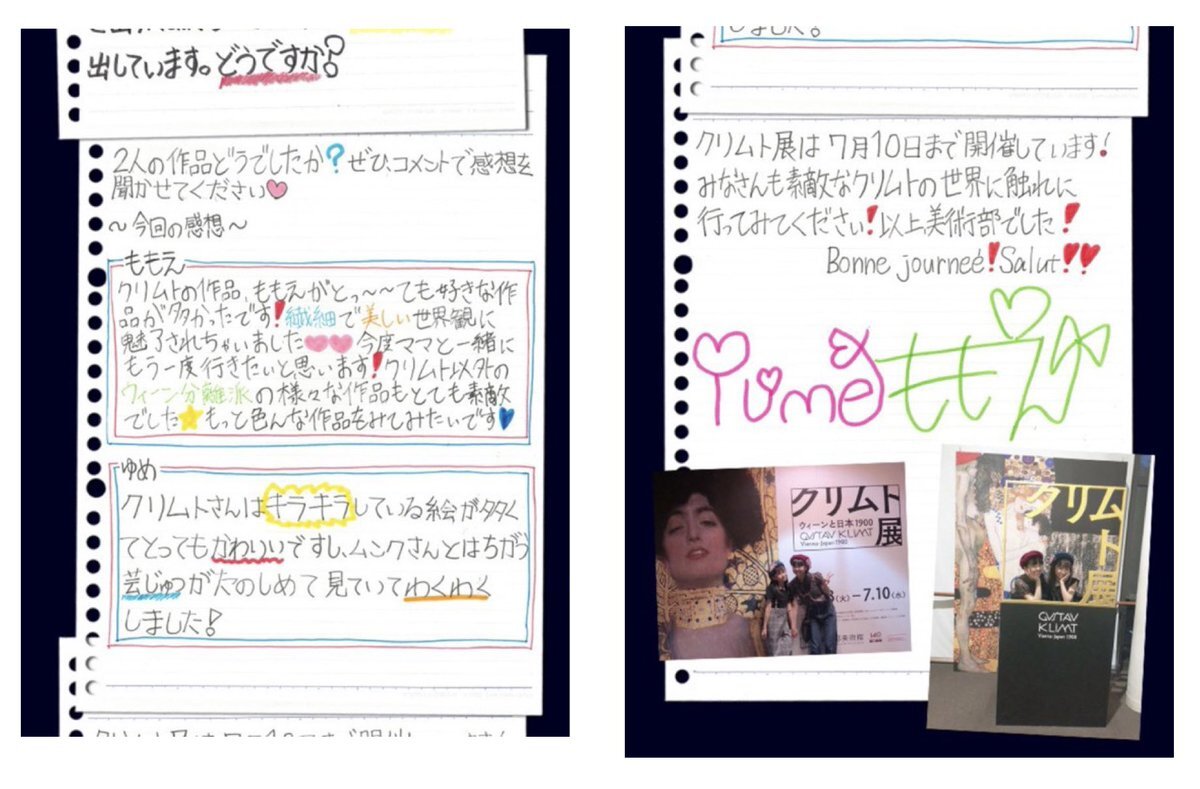 出しています。どうですか?
2人の作品どうでしたか?ぜひ、コメントで感想を
聞かせてください♥
～今回の感想～
ももえ
クリムトの作品、ももえがとっ～～ても好きな作
品が多かったです!繊細で美しい世界観に
魅了されちゃいました♥♥今度ママと一緒に
もう一度行きたいと思います!クリムト以外の
ウィーン分離派の様々な作品もとても素敵
でした★もっと色んな作品をみてみたいです♥
ゆめ
クリムトさんはキラキラしている絵が多く
てとってもかわいいですし、ムンクさんとはちがう
芸じゅつがたのしめて見ていてわくわく
しました!
しました!
クリムト展は7月10日まで開催しています!
みなさんも素敵なクリムトの世界に触れに
行ってみてください!以上、美術部でした!
Bonne journeé!Salut!!
Yume ももえ
クリムト
展
ウィーンと日本1900
GUSTAV KLIMT
Vienna-Japan 1900
(火)－7.10(水)
クリムト
展
GUSTAV
KLIMT
Vienna-Japan 1900